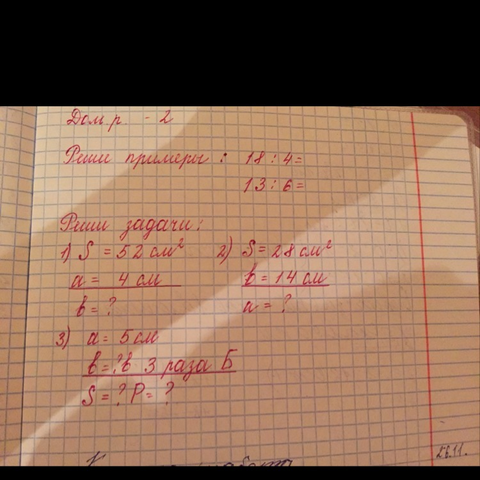 Дом. р. - 2
Реши примеры: 18 : 4 =
13 : 6 =
Реши задачи:
1) S = 52 см² 2) S = 28 см²
a = 4 см b = 14 см
b = ? a = ?
3) a = 5 см
b = ? в 3 раза Б
S = ? P = ?
26.11.